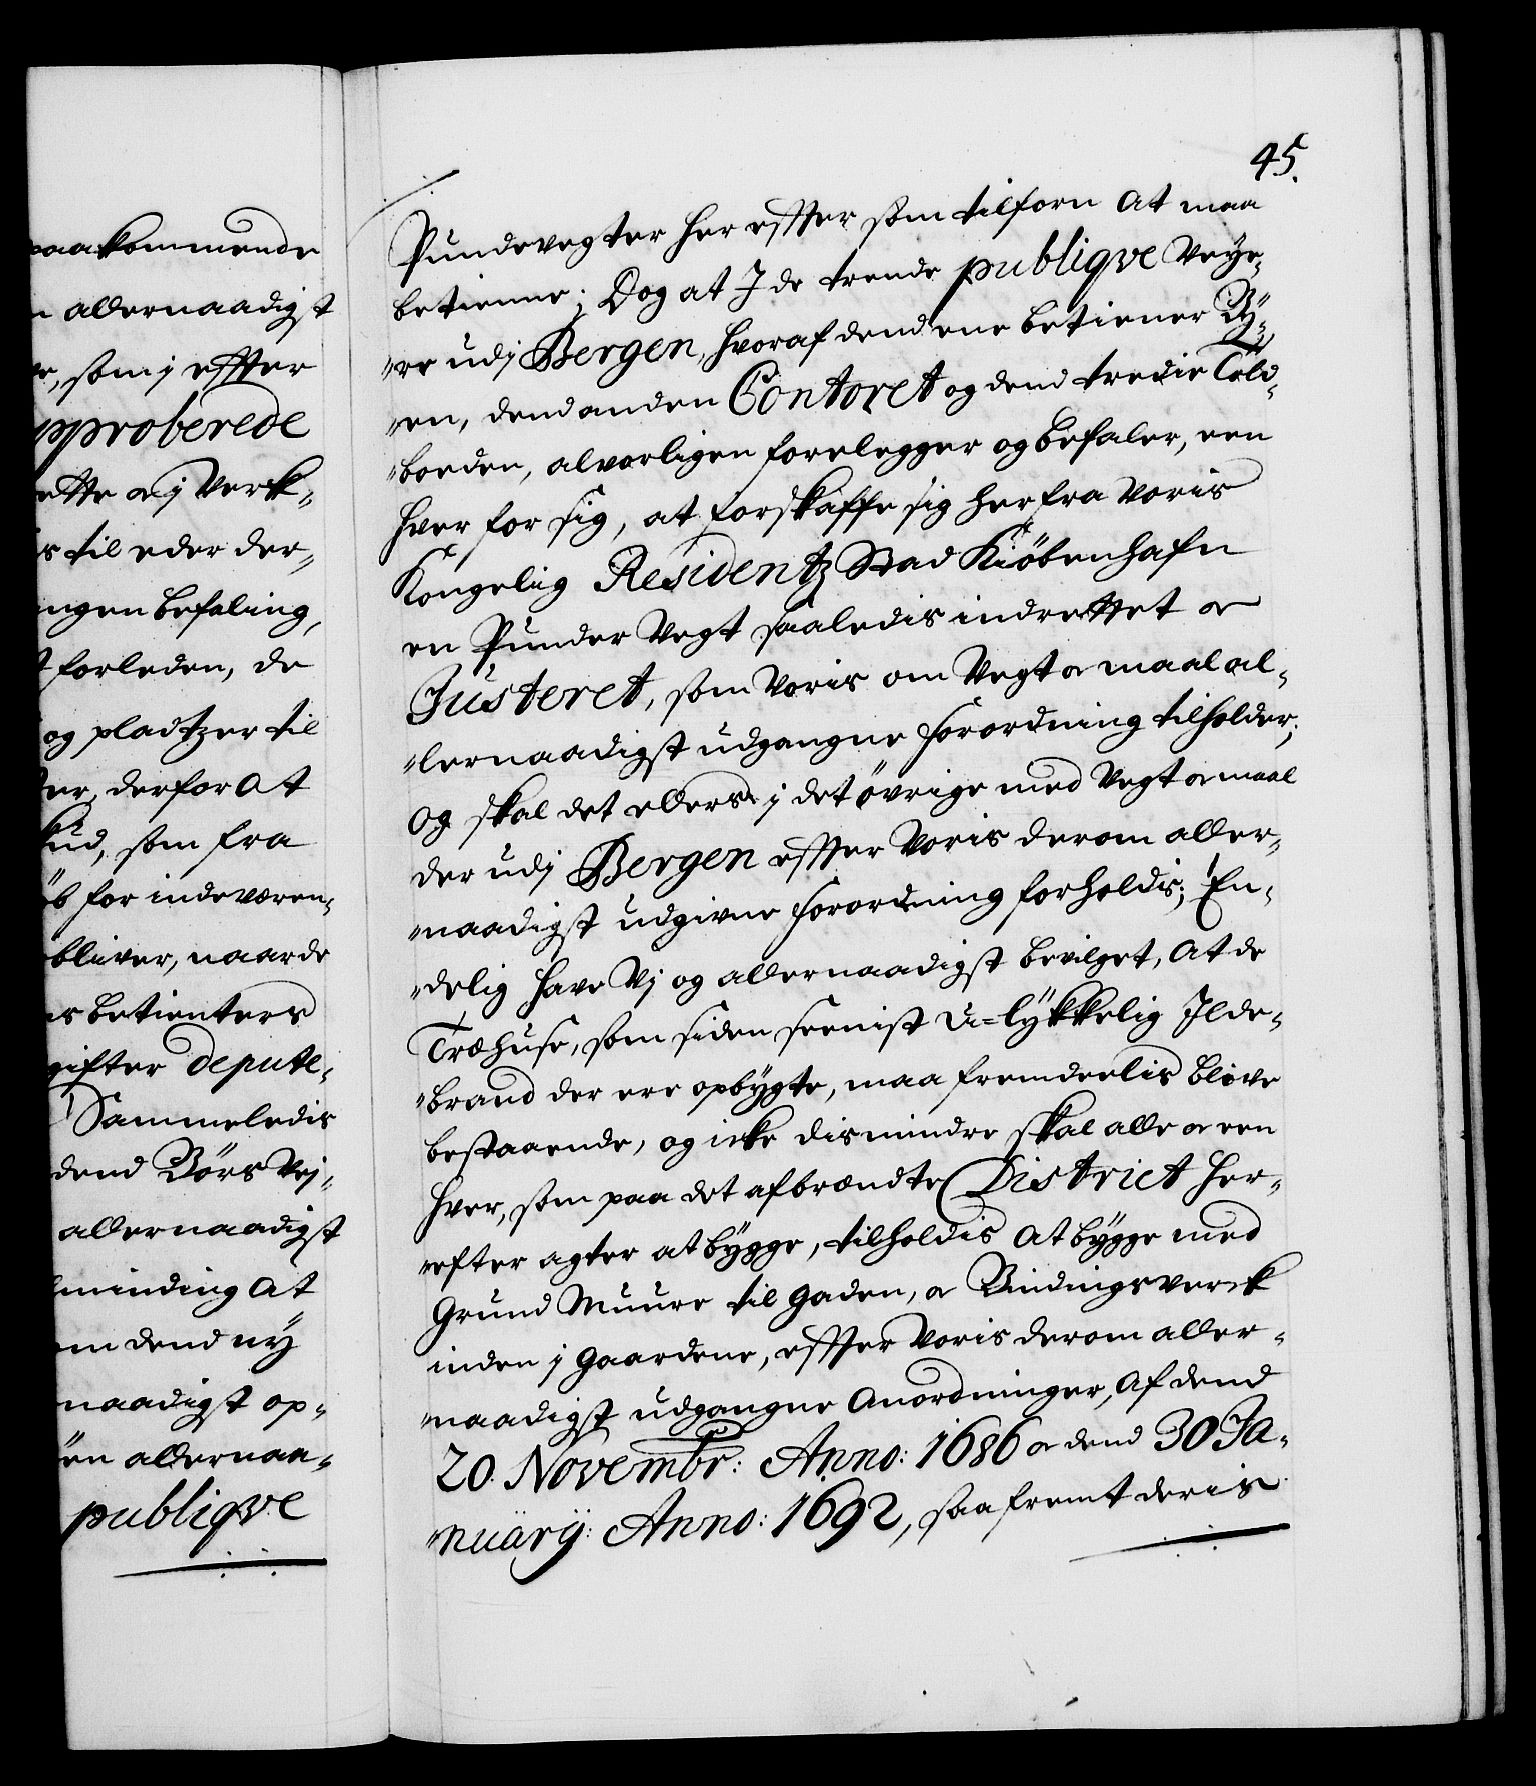 paakommende
allernaadigst
, som j effter
approberede
ette a j Verk-
s til eder der-
ngen befaling,
forleden, de
og pladtzer til
er, derfor At
ud, som fra
b for indeværen-
bliver, naar de
s betienters
gifter depute-
Sammeledis
dend Börs Vej-
allernaadigst
minding At
om dend ny
naadigst op-
en allernaa-
publiqve
45.
Pundevegter her effter som tilforn At maa
betienne; Dog at J de trende publiqve Veye-
re udj Bergen, hvoraf dend ene betiener By-
en, dend anden Contoret og dend tredie Told-
boeden, alvorligen forelegger og befaler, een
hver for sig, at forskaffe sig her fra Voris
Kongelig Residentz Stad Kiöbenhafn
en Punder Vegt saaledis indrettet &
Justeret, som Voris om Vegt & maal al-
lernaadigst udgangne forordning tilholder;
Og skal det ellers j det övrige med Vegt & maal
der udj Bergen effter Voris derom aller-
naadigst udgivne forordning forholdis; En-
delig have Vj og allernaadigst bevilget, At de
Træhuse, som siden seenist U-lykkelig Ilde-
brand der ere opbygte, maa fremdeelis blive
bestaaende, og icke dismindre skal alle & een
hver, som paa det afbrændte District her-
effter agter at bygge, tilholdis At bygge med
Grund Muure til Gaden, & Bindingsverck
inden j Gaardene, effter Voris derom aller-
naadigst udgangne Anordninger, Af dend
20. Novembr: Anno: 1686 & dend 30 Ja-
nuarij: Anno: 1692, saafremt deris